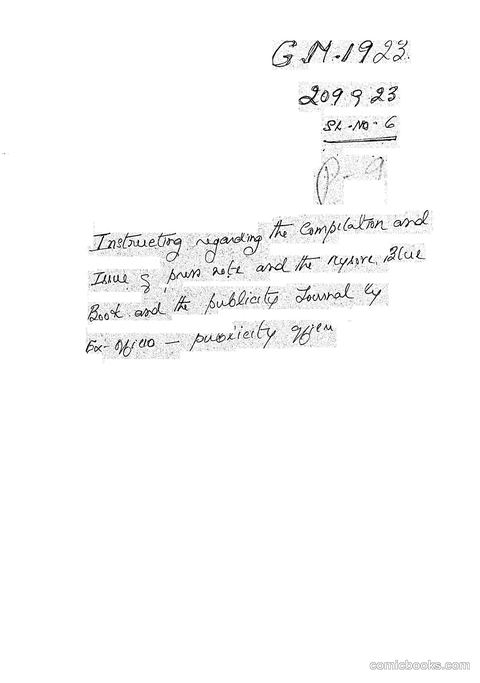 G.M.1923.
209 9 23
SL.-NO-6
P-9
Instructing regarding the Compilation and
Issue of press note and the Mysore Blue
Book and the publicity Journal by
Ex-officio — publicity officer
comicbooks.com